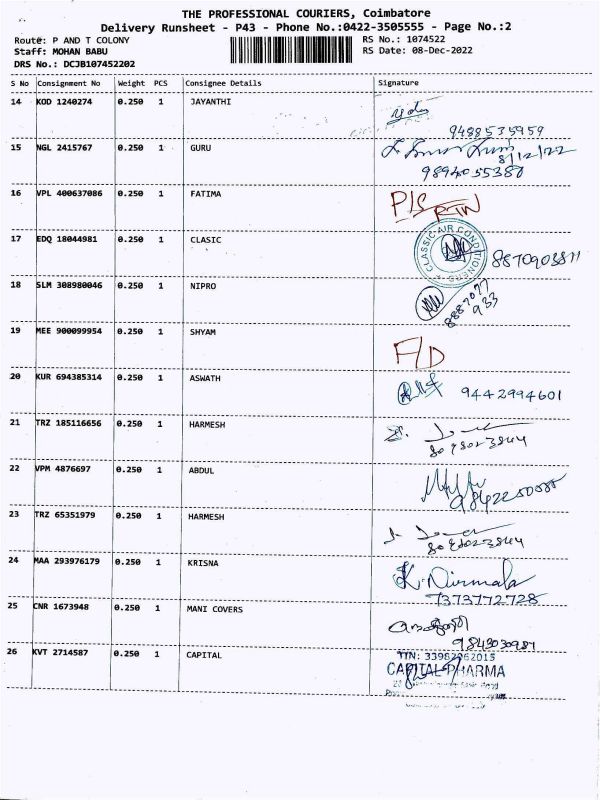 THE PROFESSIONAL COURIERS, Coimbatore
Delivery Runsheet - P43 - Phone No.:0422-3505555 - Page No.:2
Route: P AND T COLONY
RS No.: 1074522
Staff: MOHAN BABU
RS Date: 08-Dec-2022
DRS No.: DCJB107452202
S No Consignment No Weight PCS Consignee Details Signature
14 KOD 1240274 0.250 1 JAYANTHI
9488535959
15 NGL 2415767 0.250 1 GURU
8/12/22
9894055380
16 VPL 400637086 0.250 1 FATIMA
P/S
17 EDQ 18044981 0.250 1 CLASIC
CLASSIC AIR CONDITIONERS
18 SLM 308980046 0.250 1 NIPRO
8887077
933
19 MEE 900099954 0.250 1 SHYAM
F/D
20 KUR 694385314 0.250 1 ASWATH
9442994601
21 TRZ 185116656 0.250 1 HARMESH
22 VPM 4876697 0.250 1 ABDUL
23 TRZ 65351979 0.250 1 HARMESH
24 MAA 293976179 0.250 1 KRISNA
K. Nirmala
7373772728
25 CNR 1673948 0.250 1 MANI COVERS
9843030987
26 KVT 2714587 0.250 1 CAPITAL
CAPITAL PHARMA